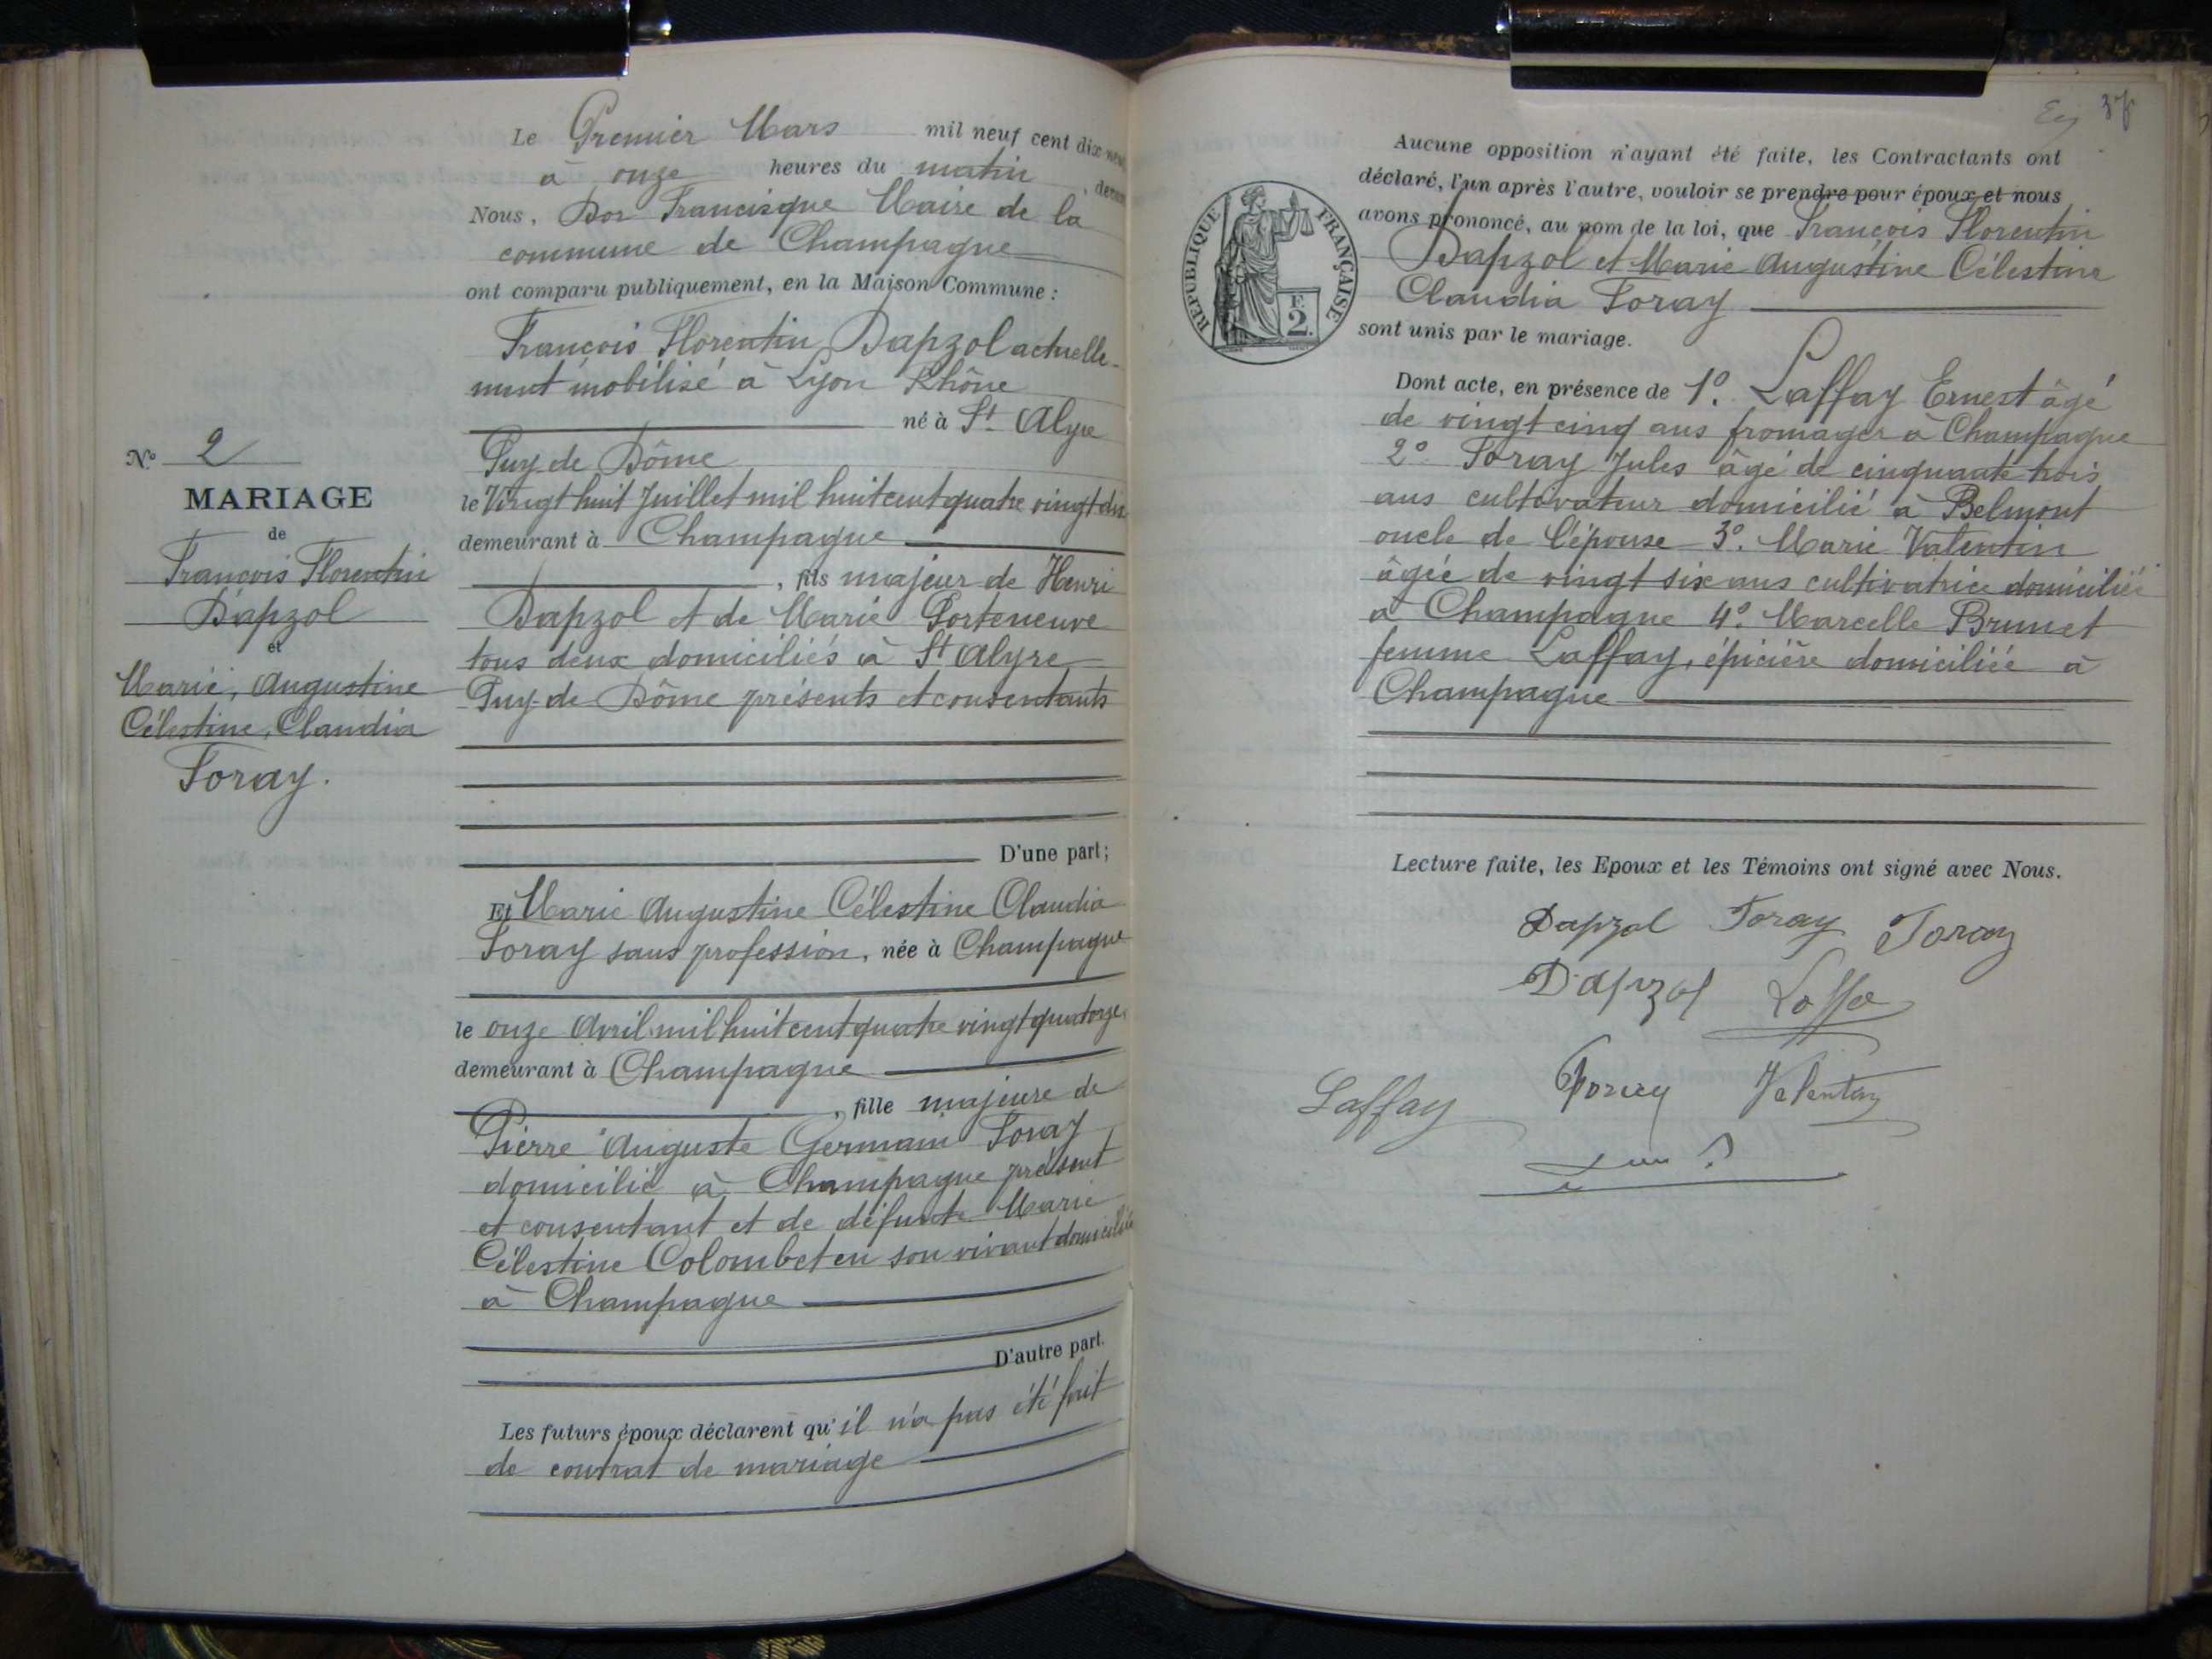 Le Premier Mars mil neuf cent dix-neuf
à onze heures du matin, devant
Nous, Dor Francisque Maire de la
commune de Champagne
ont comparu publiquement, en la Maison Commune :
François Florentin Dapzol actuelle-
ment mobilisé à Lyon Rhône
né à St Alyre
Puy de Dôme
le Vingt huit Juillet mil huit cent quatre vingt dix
demeurant à Champagne
, fils majeur de Henri
Dapzol et de Marie Porteneuve
tous deux domiciliés à St Alyre
Puy-de Dôme présents et consentants
D'une part;
Et Marie Augustine Célestine Claudia
Foray sans profession, née à Champagne
le onze Avril mil huit cent quatre vingt quatorze
demeurant à Champagne
, fille majeure de
Pierre Auguste Germain Foray
domicilié à Champagne présent
et consentant et de défunte Marie
Célestine Colombet en son vivant domiciliée
à Champagne
D'autre part.
Les futurs époux déclarent qu'il n'a pas été fait
de contrat de mariage
No 2
MARIAGE
de
François Florentin
Dapzol
et
Marie, Augustine
Célestine, Claudia
Foray.
37
REPUBLIQUE FRANÇAISE
F.
2.
Aucune opposition n'ayant été faite, les Contractants ont
déclaré, l'un après l'autre, vouloir se prendre pour époux et nous
avons prononcé, au nom de la loi, que François Florentin
Dapzol et Marie Augustine Célestine
Claudia Foray
sont unis par le mariage.
Dont acte, en présence de 1º. Laffay Ernest âgé
de vingt cinq ans fromager à Champagne
2º Foray Jules âgé de cinquante trois
ans cultivateur domicilié à Belmont
oncle de l'épouse 3º. Marie Valentin
âgée de vingt six ans cultivatrice domiciliée
à Champagne 4º. Marcelle Brunet
femme Laffay, épicière domiciliée à
Champagne
Lecture faite, les Epoux et les Témoins ont signé avec Nous.
Dapzol Foray Foray
Dapzol
Laffay Foray Valentin